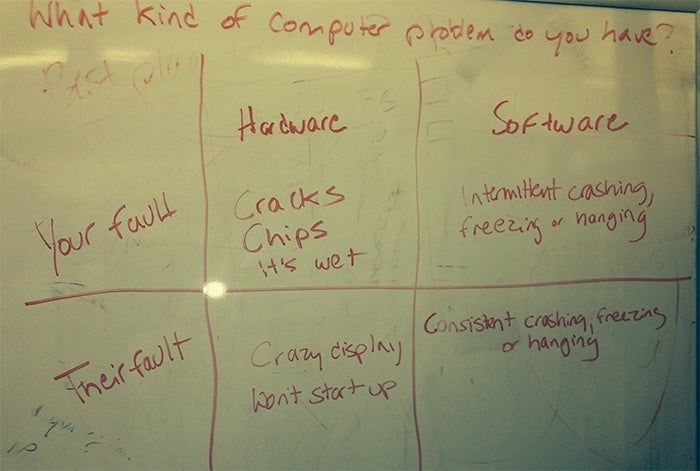 What kind of computer problem do you have?
Hardware
Software
Your fault
Cracks
Chips
It's wet
Intermittent crashing,
freezing or hanging
Their fault
Crazy display
Won't start up
Consistent crashing, freezing
or hanging